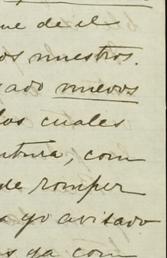 ue de el
os nuestros.
gado nuevos
los cuales
ntura, com
de romper
a yo avisado
s ya com